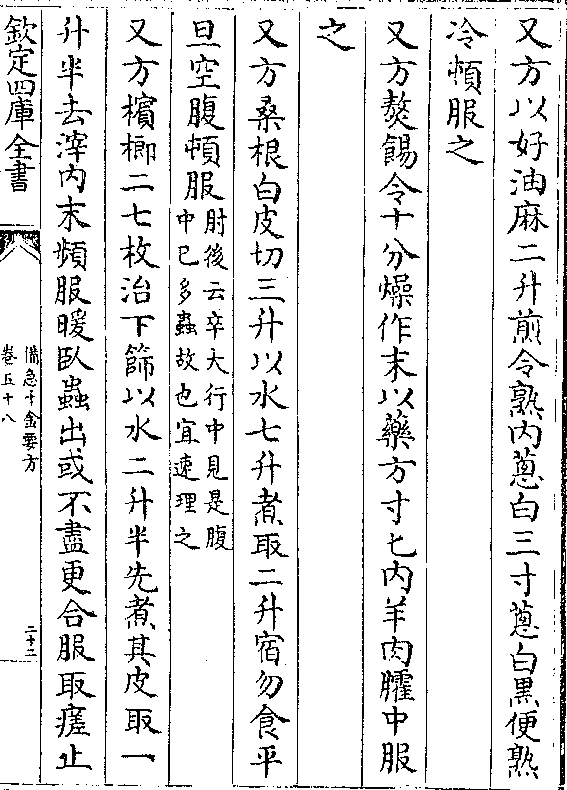 又方以好油麻二升煎令熟内蔥白三寸蔥白黒便熟
冷頓服之
又方熬餳令十分燥作末以藥方寸匕内羊肉臛中服
之
又方桑根白皮切三升以水七升煮取二升宿勿食平
旦空腹頓服肘後云卒大行中見是腹
中已多蟲故也宜速理之
又方檳榔二七枚治下篩以水二升半先煮其皮取一
升半去滓内末頻服暖臥蟲出或不盡更合服取瘥止
欽定四庫全書
備急千金要方
卷五十八
二十二